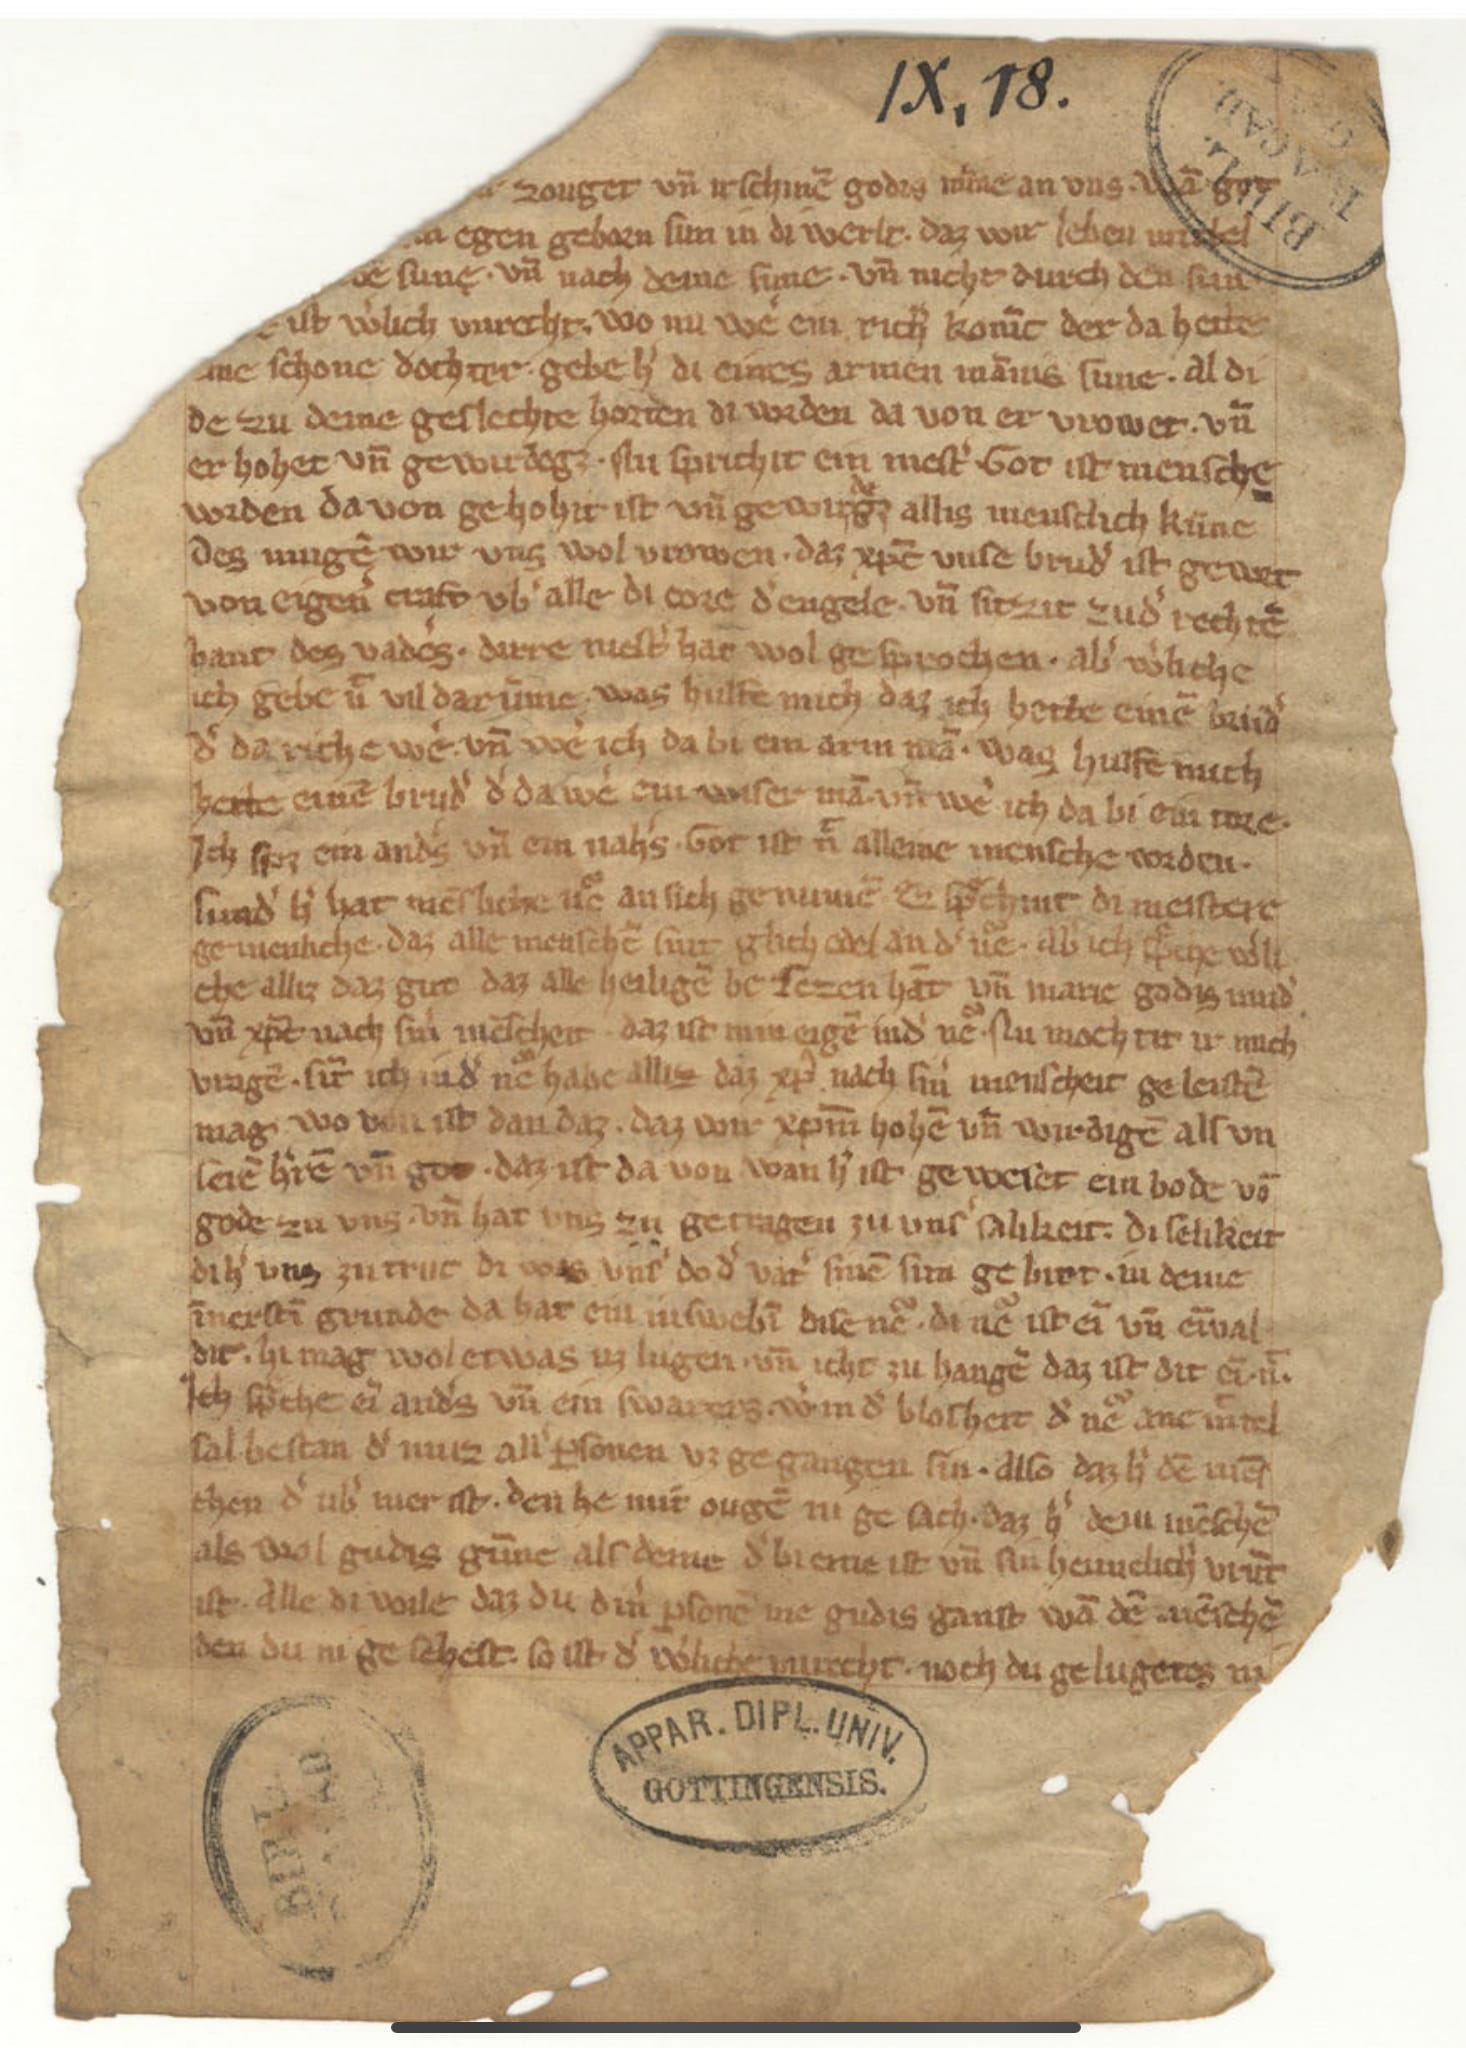 IX, 18.
BIBL.
ACAD
zouget vn̄ irschinē godis mīne an vns. wā got
egen geborn sun in di werlt. daz wir leben mit del
sune. vn̄ nach deme sune. vn̄ nicht durch den sun
ist w'lich vnrecht. wo nu we' ein rich' konīc der da hette
eine schone dochter. gebe h' di eines armen mānis sune. al di
de zu deme geslechte horten di worden da von er vrowet. vn̄
er hohet vn̄ gewirdegꝫ. Nu sprichit ein mest' Got ist mensche
worden da von gehohit ist vn̄ gewirdegꝫ allis menschlich kūne
des mugē wir vns wol vrowen. daz xp̄c vnse brud' ist gewert
von eigen' craft vb' alle di core d' engele. vn̄ sitzit zu d' rechtē
hant des vader's. dirre mest' hat wol gesprochen. ab' w'liche
ich gebe nt̄ vil dar ūme. was hulfe mich daz ich hette einē brud'
d' da riche we'. vn̄ we' ich da bi ein arm mā. was hulfe mich
hette einē brud' d' da we' ein wiser mā. vn̄ we' ich da bi ein tore.
Ich sprꝫ ein and's vn̄ ein nah's. Got ist nt̄ alleine mensche worden.
sund' h' hat mēsliche nͣē an sich genumē. Ez sp̄chint di meistere
gemenliche. daz alle menschē sint glich edel an d' nͣē. Ab' ich sp̄che w'li
che alliz daz gut daz alle heiligē besezen hāt vn̄ marie godis mud'
vn̄ xp̄c nach sin' mēscheit. daz ist min eigē in d' nͣē. Nu mochtit ir mich
vragē. sīt ich in d' nͣē habe alliz daz xp̄c nach sin' menscheit geleistē
mag. wo von ist dan daz. daz wir xp̄m hohē vn̄ wirdigē als vn
seiē h'rē vn̄ got. daz ist da von wan h' ist geweset ein bode vō
gode zu vns. vn̄ hat vns zu getragen zu vns' salikeit. di selikeit
di h' vns zu truc di was vns' do d' vat' sinē sun gebirt. in deme
īnerstī grunde da hat ein inswebī dise nͣē. di nͣē ist eī vn̄ eīval
dit. hi mag wol etwas uz lugen. vn̄ icht zu hangē daz ist dit eī. nt̄.
Ich sp̄che eī and's vn̄ ein swarers. w' in d' blosheit d' nͣē ane mitel
sal bestan d' muz all' p̄sonen vz gegangen sin. also daz h' dē men
chen d' ub' mer ist. den he mit ougē ni gesach. daz h' dem mēschē
als wol gudis gūne als deme d' bi eme ist vn̄ sin heimelich' vrūt
ist. Alle di wile daz du din' p̄sonē me gudis ganst wā dē mēschē
den du ni gesehest. so ist d' w'liche vnrecht. noch du gelugetes ni
APPAR. DIPL. UNIV.
GOTTINGENSIS.
BIBL.